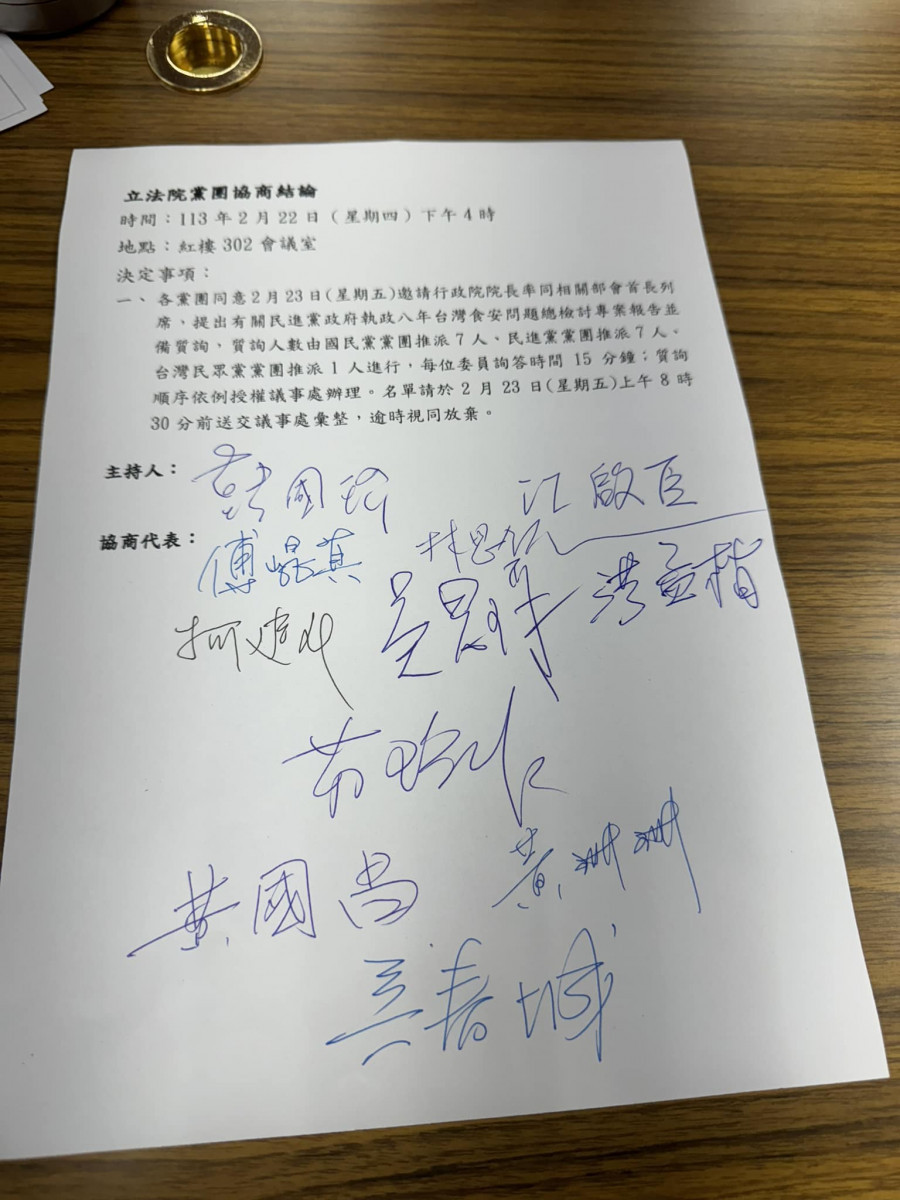 立法院黨團協商結論
時間：113年2月22日（星期四）下午4時
地點：紅樓302會議室
決定事項：
一、各黨團同意2月23日(星期五)邀請行政院院長率同相關部會首長列
席，提出有關民進黨政府執政八年台灣食安問題總檢討專案報告並
備質詢，質詢人數由國民黨黨團推派7人、民進黨黨團推派7人、
台灣民眾黨黨團推派1人進行，每位委員詢答時間15分鐘；質詢
順序依例授權議事處辦理。名單請於2月23日(星期五)上午8時
30分前送交議事處彙整，逾時視同放棄。
主持人：韓國瑜 江啟臣
協商代表：傅崐萁 林思銘
柯建銘 吳思瑤 洪孟楷
黃國昌 黃珊珊
吳春城